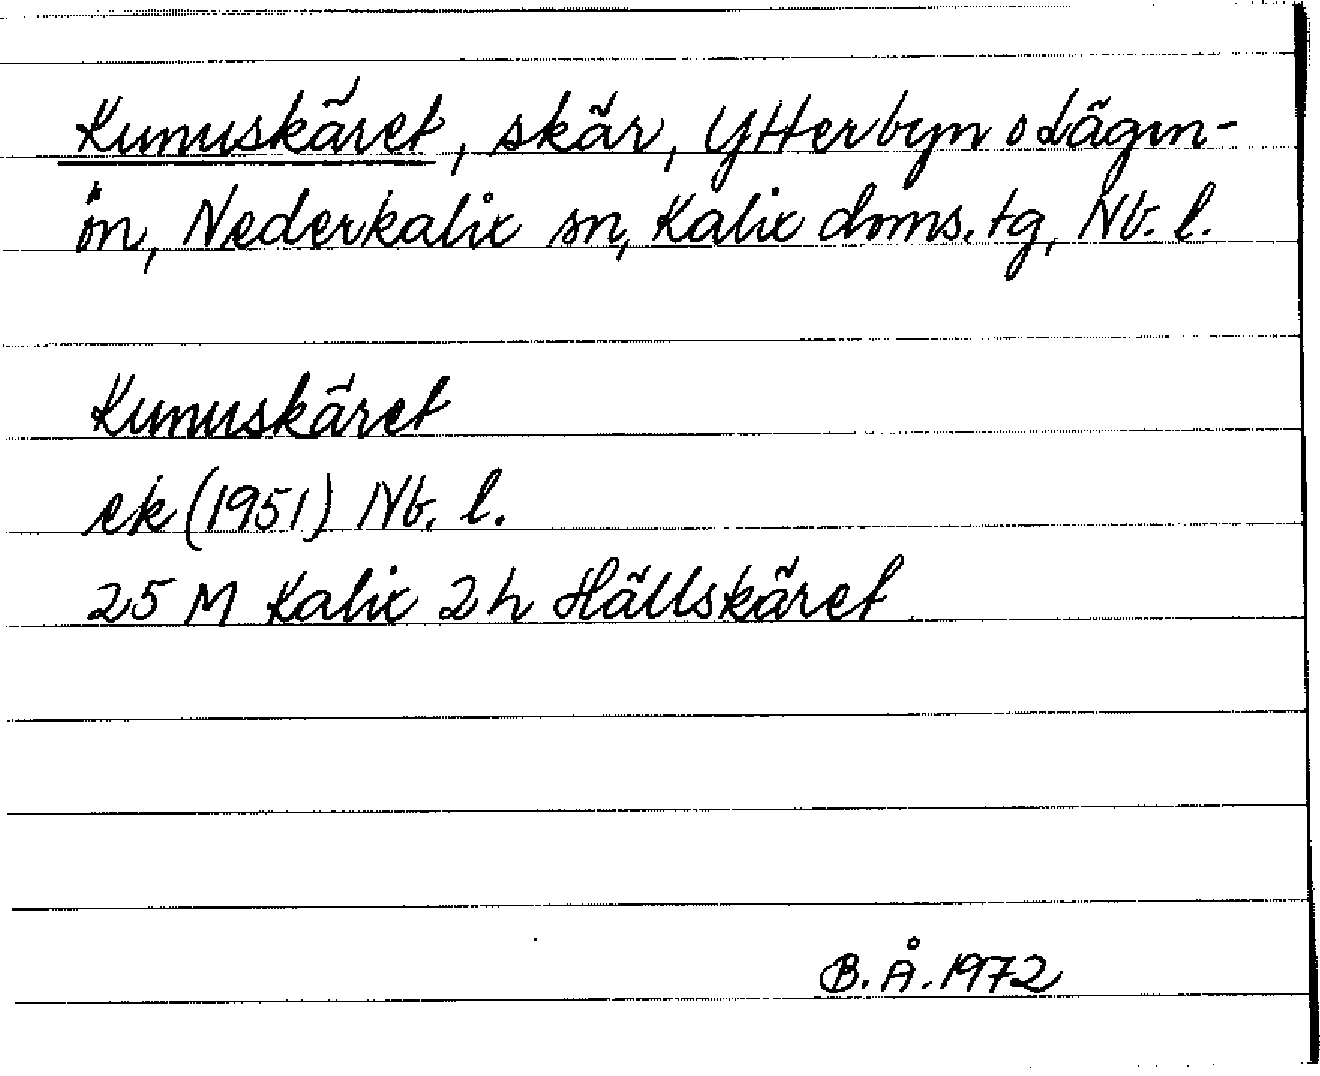 Kunuskäret, skär, Ytterbyn o Lägen-
ön, Nederkalix sn, Kalix doms. tg, Nb. l.
Kunuskäret
ek (1951) Nb. l.
25 M Kalix 2h Hällskäret
B. Å. 1972